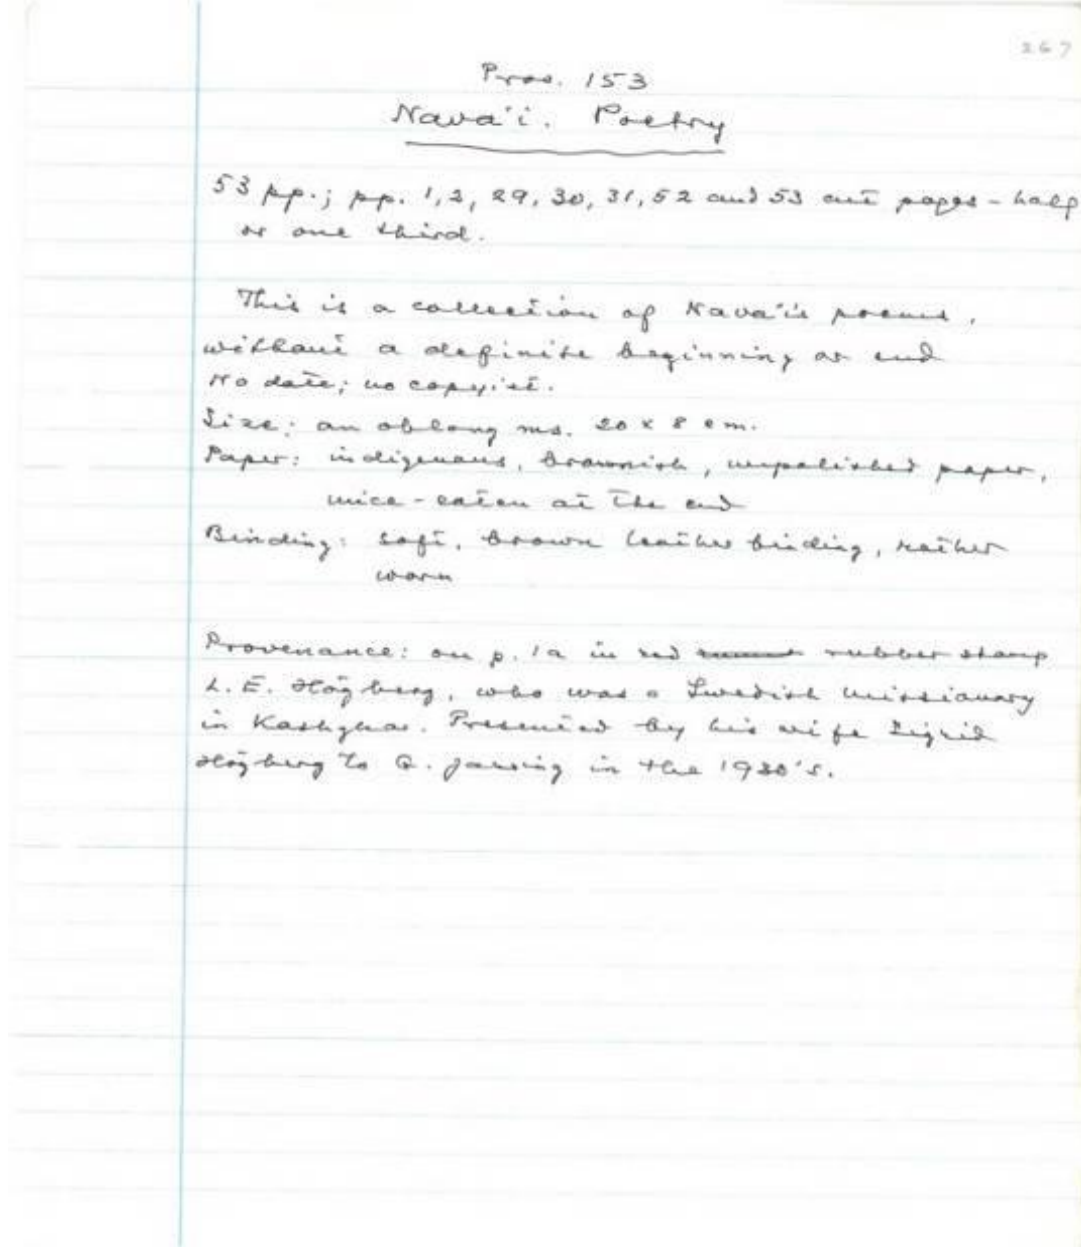 267
Prov. 153
Nava'i. Poetry
53 pp.; pp. 1,2, 29, 30, 31, 52 and 53 cut pages - half
or one third.
This is a collection of Nava'i's poems,
without a definite beginning or end
No date; no copyist.
Size: an oblong ms. 20 x 8 cm.
Paper: indigenous, brownish, unpolished paper,
mice-eaten at the end
Binding: soft, brown leather binding, rather
worn
Provenance: on p. 1a in red rubber stamp
L. E. Högberg, who was a Swedish missionary
in Kashghar. Presented by his wife Sigrid
Högberg to G. Jarring in the 1930's.